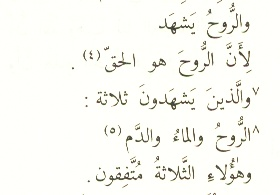 والرُّوحُ يَشهَد
لِأَنَّ الرُّوحَ هو الحقّ (٤) .
٧والَّذينَ يَشهَدونَ ثلاثة :
٨الرُّوحُ والماءُ والدَّم (٥)
وهؤُلاءِ الثَّلاثةُ مُتَّفِقون.